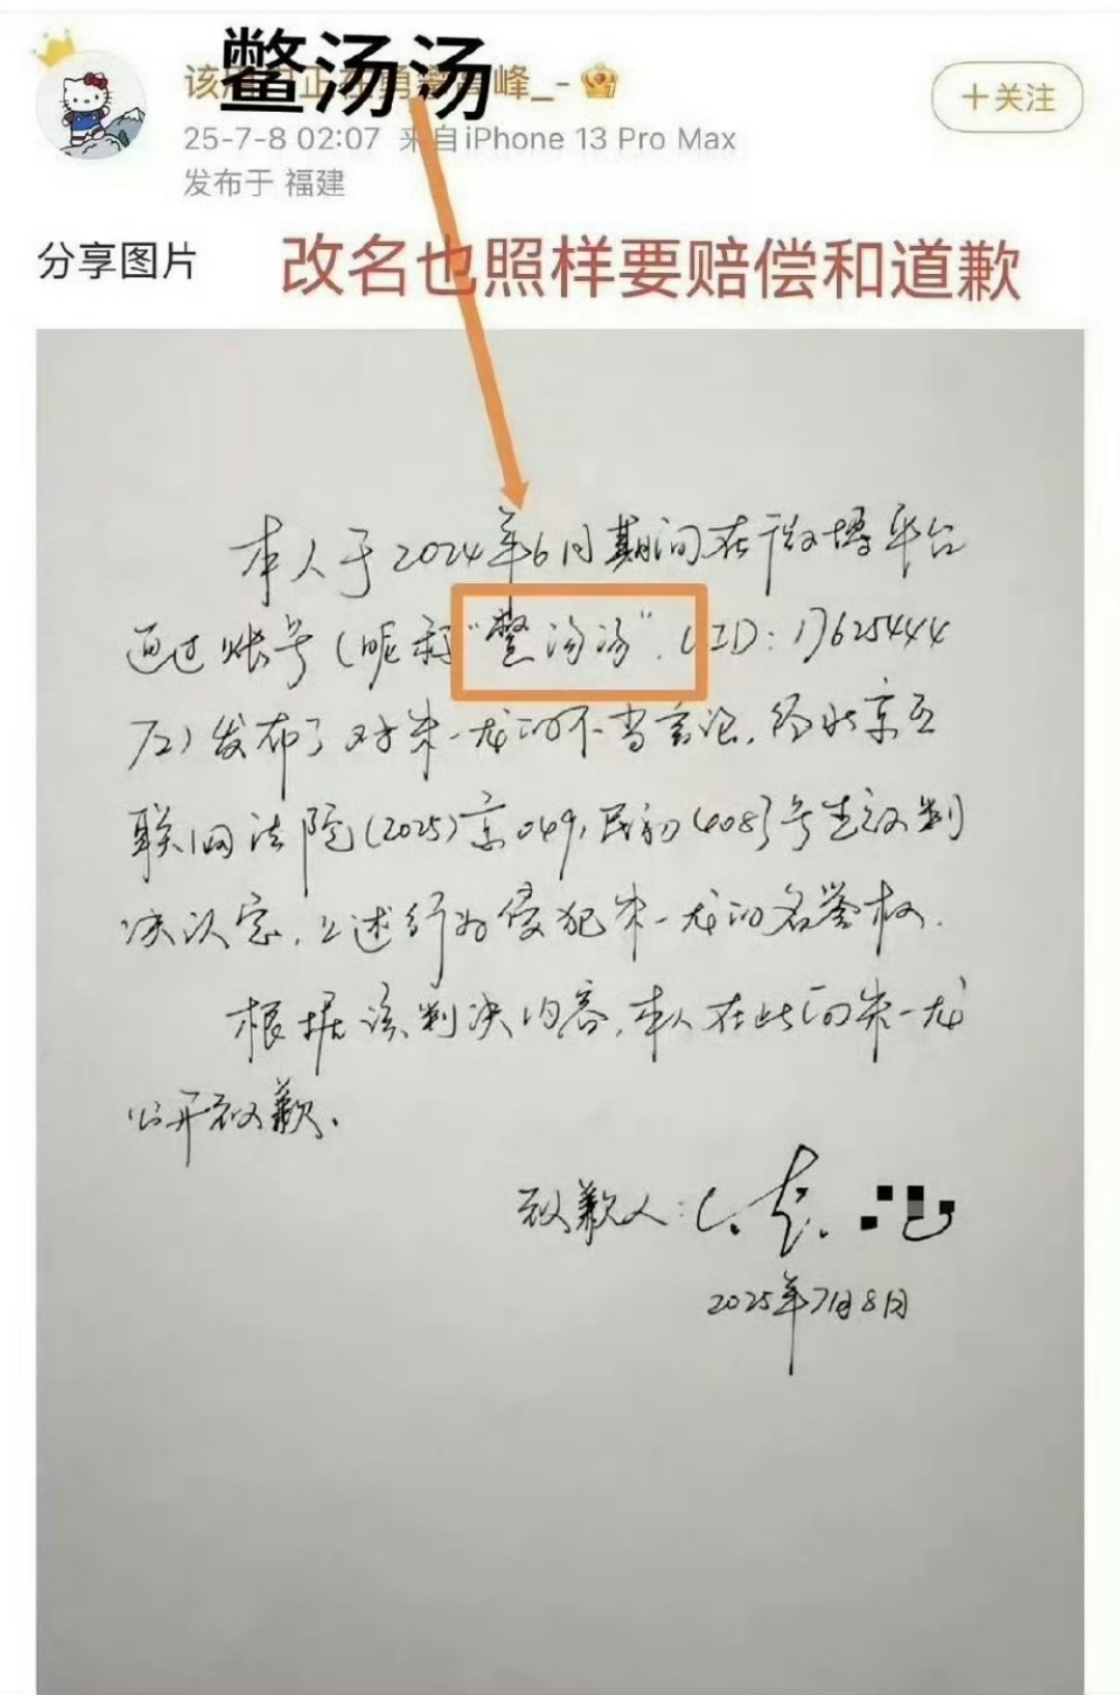 鳖汤汤
该 正 勇 峰_-
+关注
25-7-8 02:07 来自iPhone 13 Pro Max
发布于 福建
分享图片
改名也照样要赔偿和道歉
本人于2024年6月期间在微博平台
通过账号(昵称“鳖汤汤”.UID:17625444
72)发布了对朱一龙的不当言论,经北京互
联网法院(2025)京0491民初4083号生效判
决认定,上述行为侵犯朱一龙的名誉权.
根据该判决内容,本人在此向朱一龙
公开致歉.
致歉人:
2025年7月8日